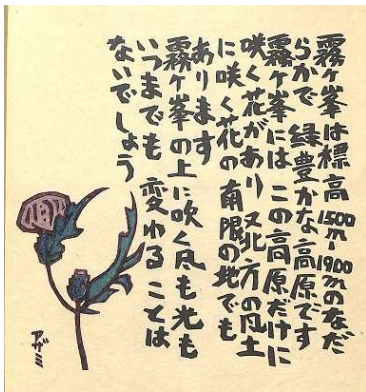 霧ヶ峯は標高1500m-1900mのなだ
らかで 緑豊かな高原です
霧ヶ峯には この高原だけに
咲く花があり 又北方の風土
に咲く花の南限の地でも
あります
霧ヶ峯の上に吹く風も光も
いつまでも 変わることは
ないでしょう
アザミ